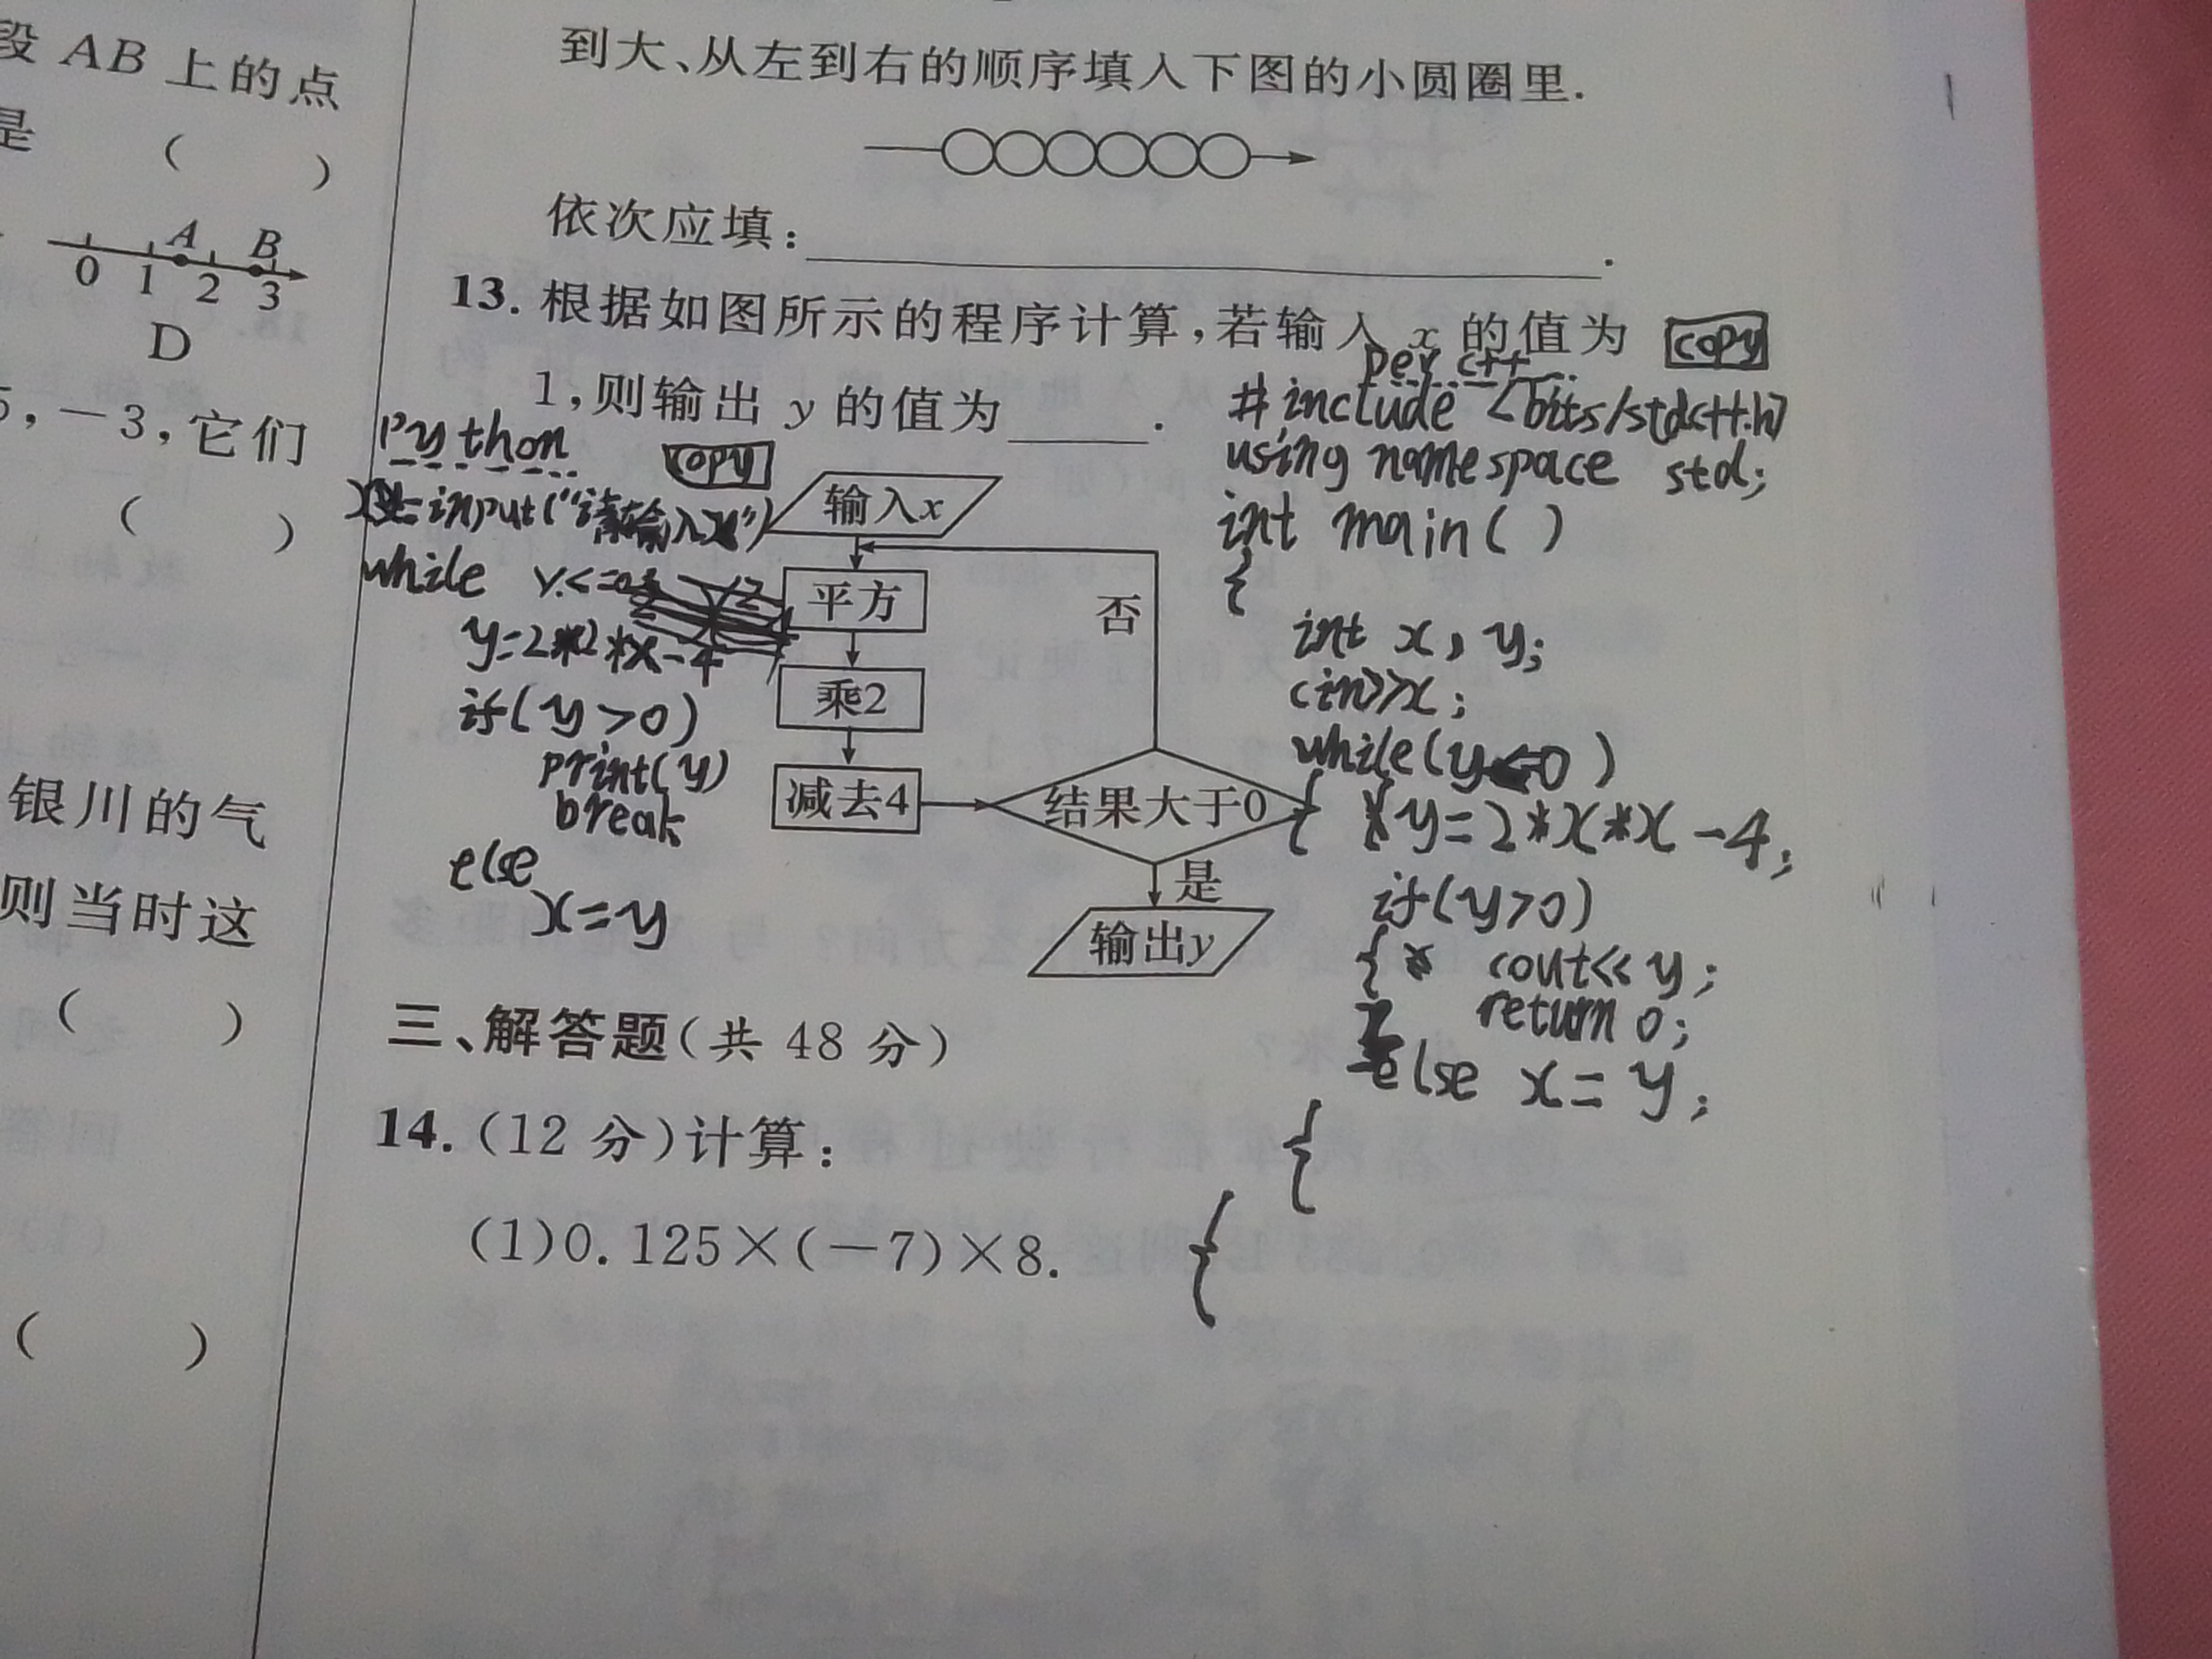 段 AB 上的点
是 (    )
A B
0 1 2 3
D
5,-3,它们
(    )
银川的气
则当时这
(    )
(    )
到大、从左到右的顺序填入下图的小圆圈里.
依次应填:____.
13. 根据如图所示的程序计算,若输入 x 的值为
1,则输出 y 的值为____.
输入x
平方
乘2
减去4
结果大于0
否
是
输出y
python
copy
=input("请输入x")
while y<=0:
y=2*x-4
if(y>0)
print(y)
break
else
x=y
copy
Dev c++
#include <bits/stdc++.h>
using namespace std;
int main( )
{
int x, y;
cin>>x;
while(y<=0)
{ y=2*x*x-4;
if(y>0)
{ cout<<y;
return 0;
else x=y;
{
{
三、解答题(共 48 分)
14.(12 分)计算:
(1)0.125×(-7)×8.